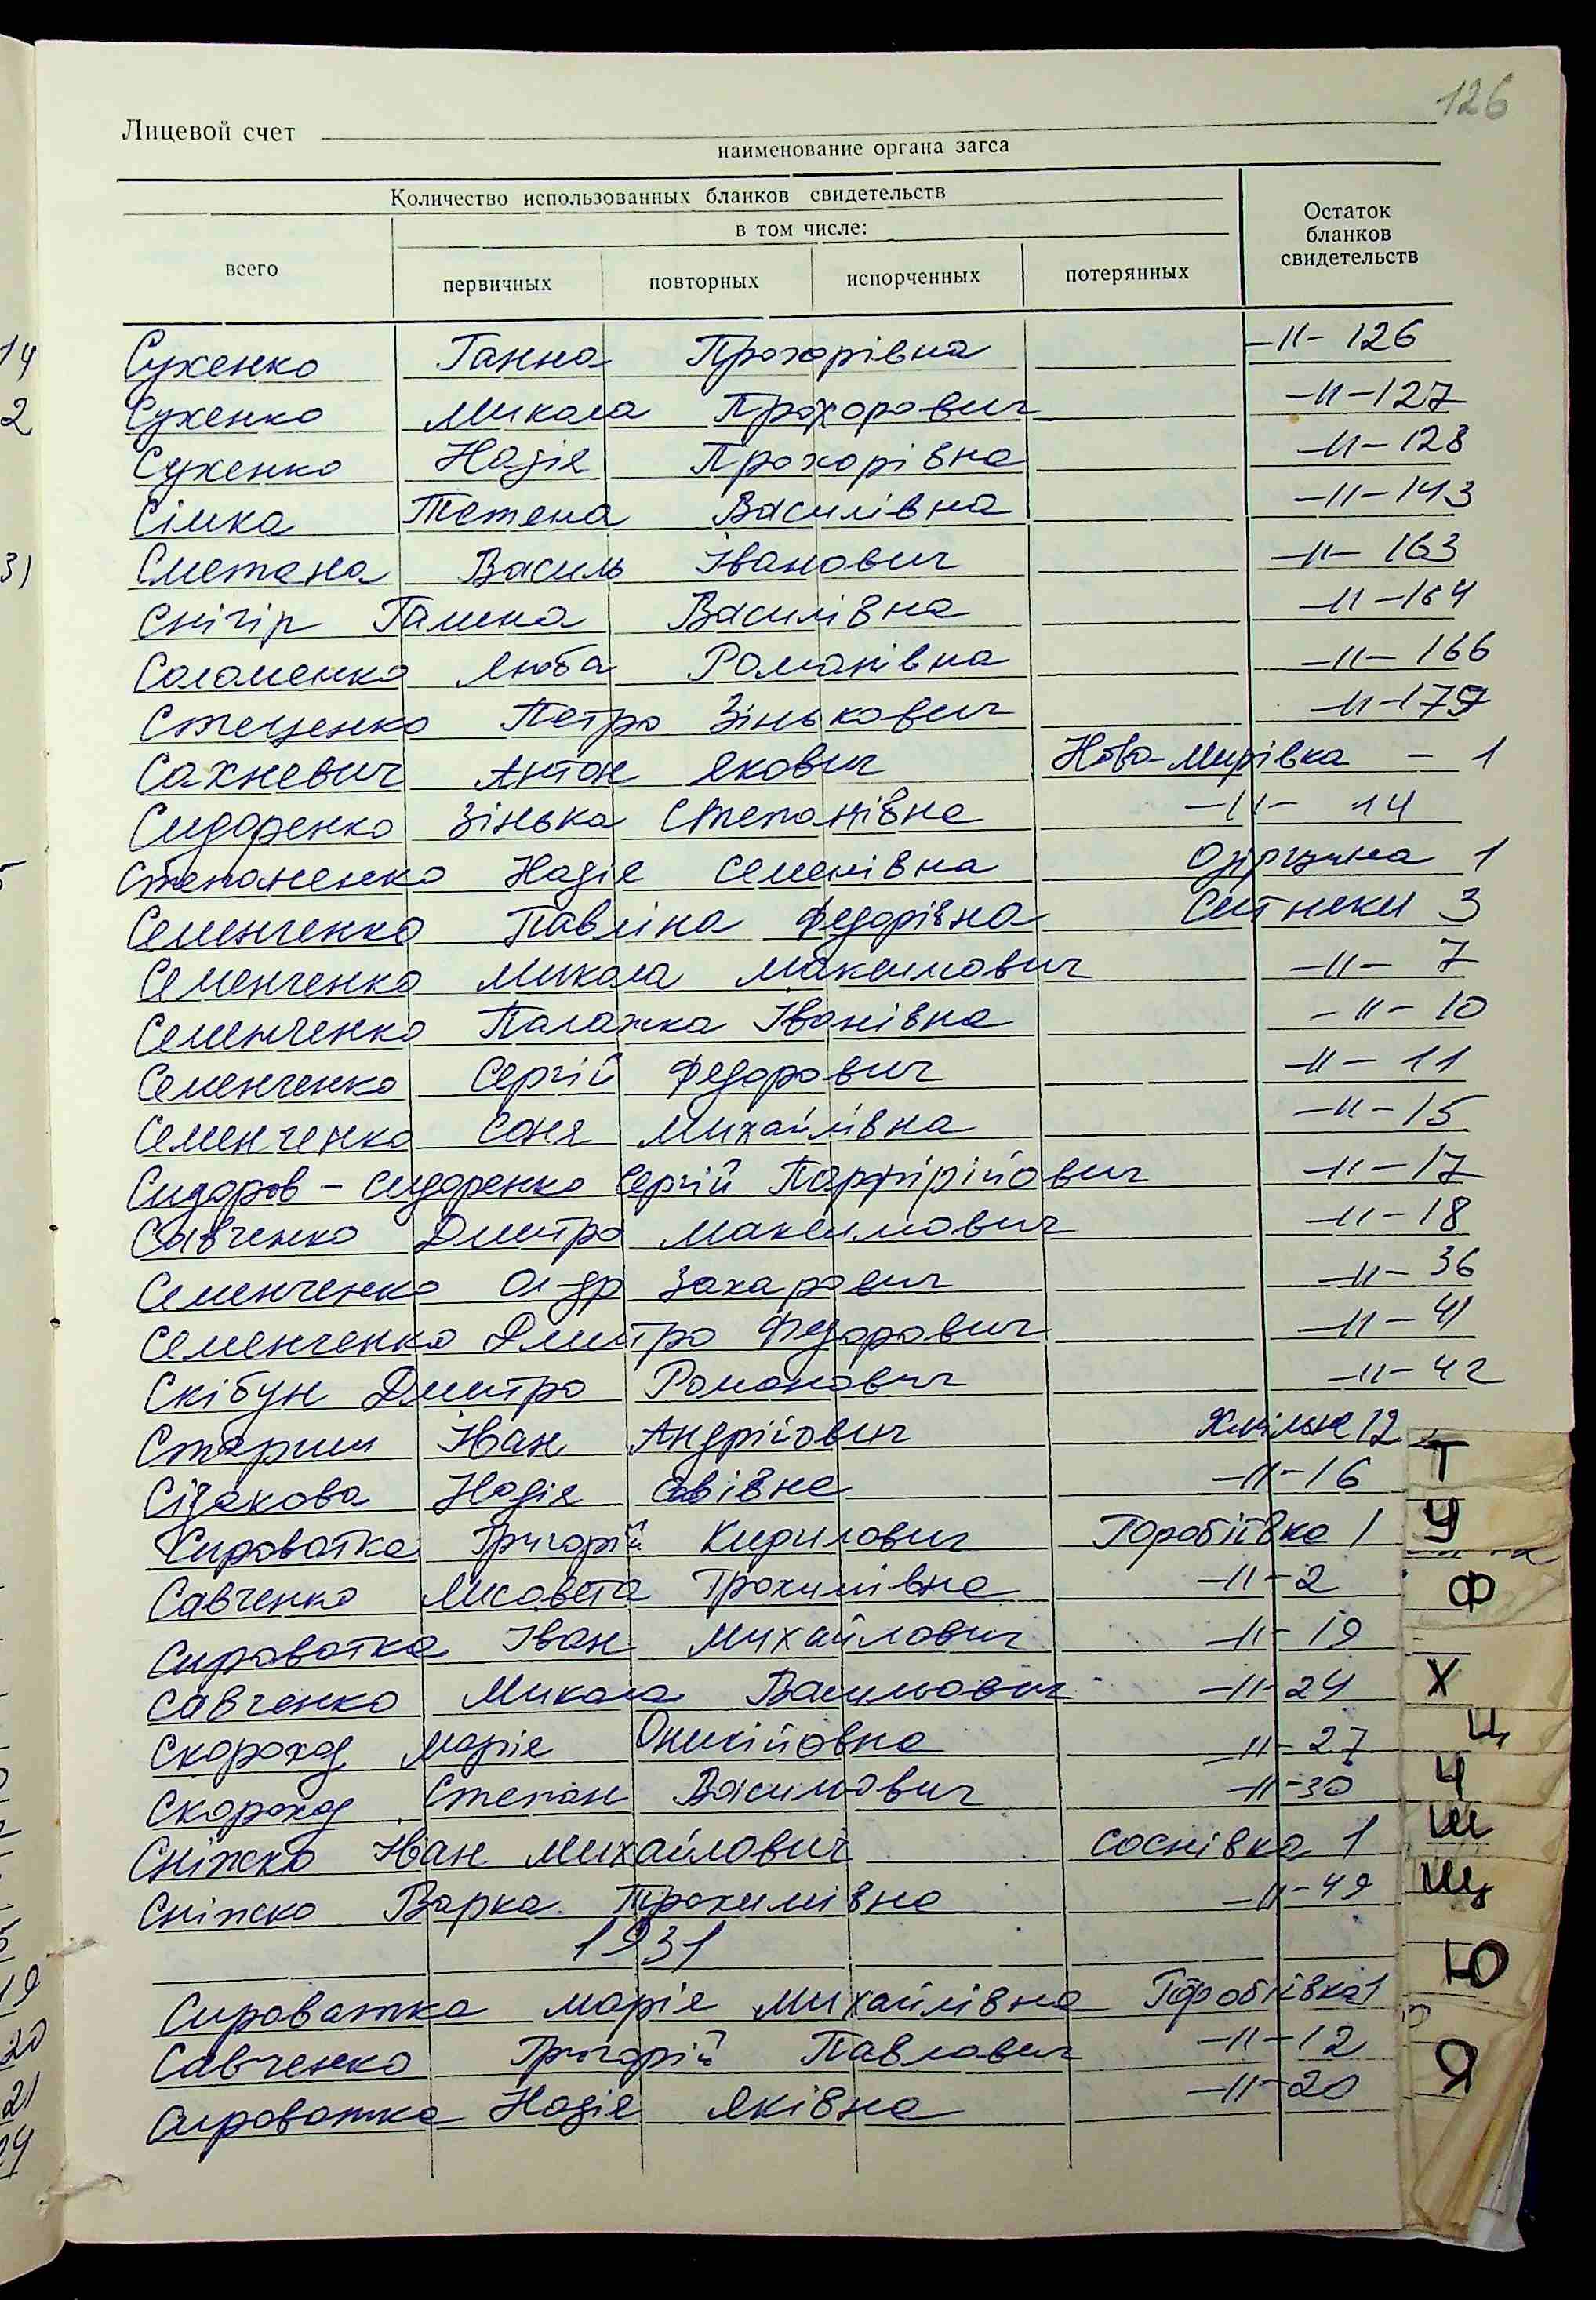 126
Лицевой счет
наименование органа загса
Количество использованных бланков свидетельств
в том числе:
Остаток бланков свидетельств
всего первичных повторных испорченных потерянных
Сухенко Ганна Прохорівна -"- 126
Сухенко Микола Прохорович -"- 127
Сухенко Надія Прохорівна -"- 128
Сімка Тетена Василівна -"- 143
Сметана Василь Іванович -"- 163
Снігір Галина Василівна -"- 164
Соломенко Люба Романівна -"- 166
Стещенко Петро Зінькович -"- 179
Сахневич Антон Якович Ново-Мирівка - 1
Сидоренко Зінька Степанівна -"- 14
Степаненко Надія Семенівна 1
Семенченко Павліна Федорівна Ситнеки 3
Семенченко Микола Максимович -"- 7
Семенченко Палажка Іванівна -"- 10
Семенченко Сергій Федорович -"- 11
Семенченко Соня Михайлівна -"- 15
Сидоров - Сидоренко Сергій Порфірійович -"- 17
Савченко Дмитро Максимович -"- 18
Семенченко Ол-др Захарович -"- 36
Семенченко Дмитро Федорович -"- 41
Скібун Дмитро Романович -"- 42
Старший Іван Андрійович Хмільне 12
Надія Савівна -"- 16
Сироватка Григорій Кирилович Горобіївка 1
Савченко Лисавета Трохимівна -"- 2
Сироватка Іван Михайлович -"- 19
Савченко Микола Васильович -"- 24
Скороход Марія Оникійовна -"- 27
Скороход Степан Васильович -"- 30
Сніжко Іван Михайлович Соснівка 1
Сніжко Варка Трохимівна -"- 49
1931
Сироватка Марія Михайлівна Горобіївка 1
Савченко Григорій Павлович -"- 12
Сироватка Надія Яківна -"- 20
Т
У
Ф
Х
Ц
Ч
Ш
Щ
Ю
Я